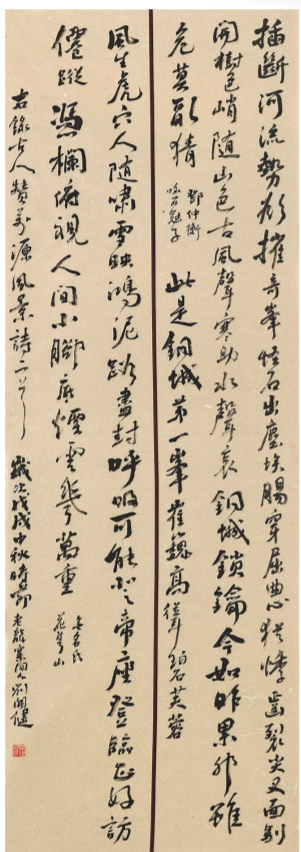 插斷河流勢欲摧奇峯怪石出塵埃腸穿屈曲心猶悸齒裂尖叉面別
開樹色峭隨山色古風聲寒助水聲哀銅城鎖鑰今如昨果然雖
危莫敢猜 鄧仲衡 此是銅城第一峯崔巍高聳碧芙蓉
風生虎穴人隨嘯雪映鴻泥跡盡封呼吸可能登帝座登臨正好訪
僊蹤憑欄俯視人間小腳底煙雲幾萬重 無名氏 花萼山
右錄古人贊萬源風景詩二首 歲次戊戌中秋時節 老龍寨陽人劉開健